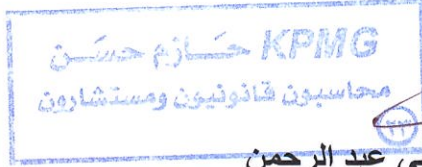 KPMG حازم حسن
محاسبون قانونيون ومستشارون
عبد الرحمن